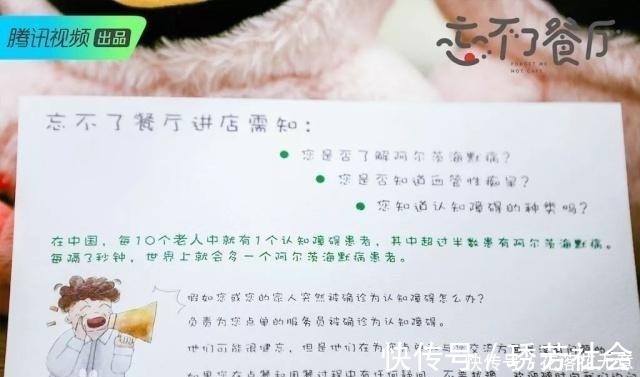 腾讯视频 出品
忘不了餐厅
FORGET ME
NOT CAFE
忘不了餐厅进店需知：
您是否了解阿尔茨海默病？
您是否知道血管性痴呆？
您知道认知障碍的种类吗？
在中国，每10个老人中就有1个认知障碍患者，其中超过半数患有阿尔茨海默病。
每隔了秒钟，世界上就会多一个阿尔茨海默病患者。
假如您或您的家人突然被确诊为认知障碍怎么办？
负责为您点单的服务员被确诊为认知障碍。
他们可能很健忘，但是他们在为
如果您在点餐和用餐过程中有任何疑问，不
快传号/琇芬社会